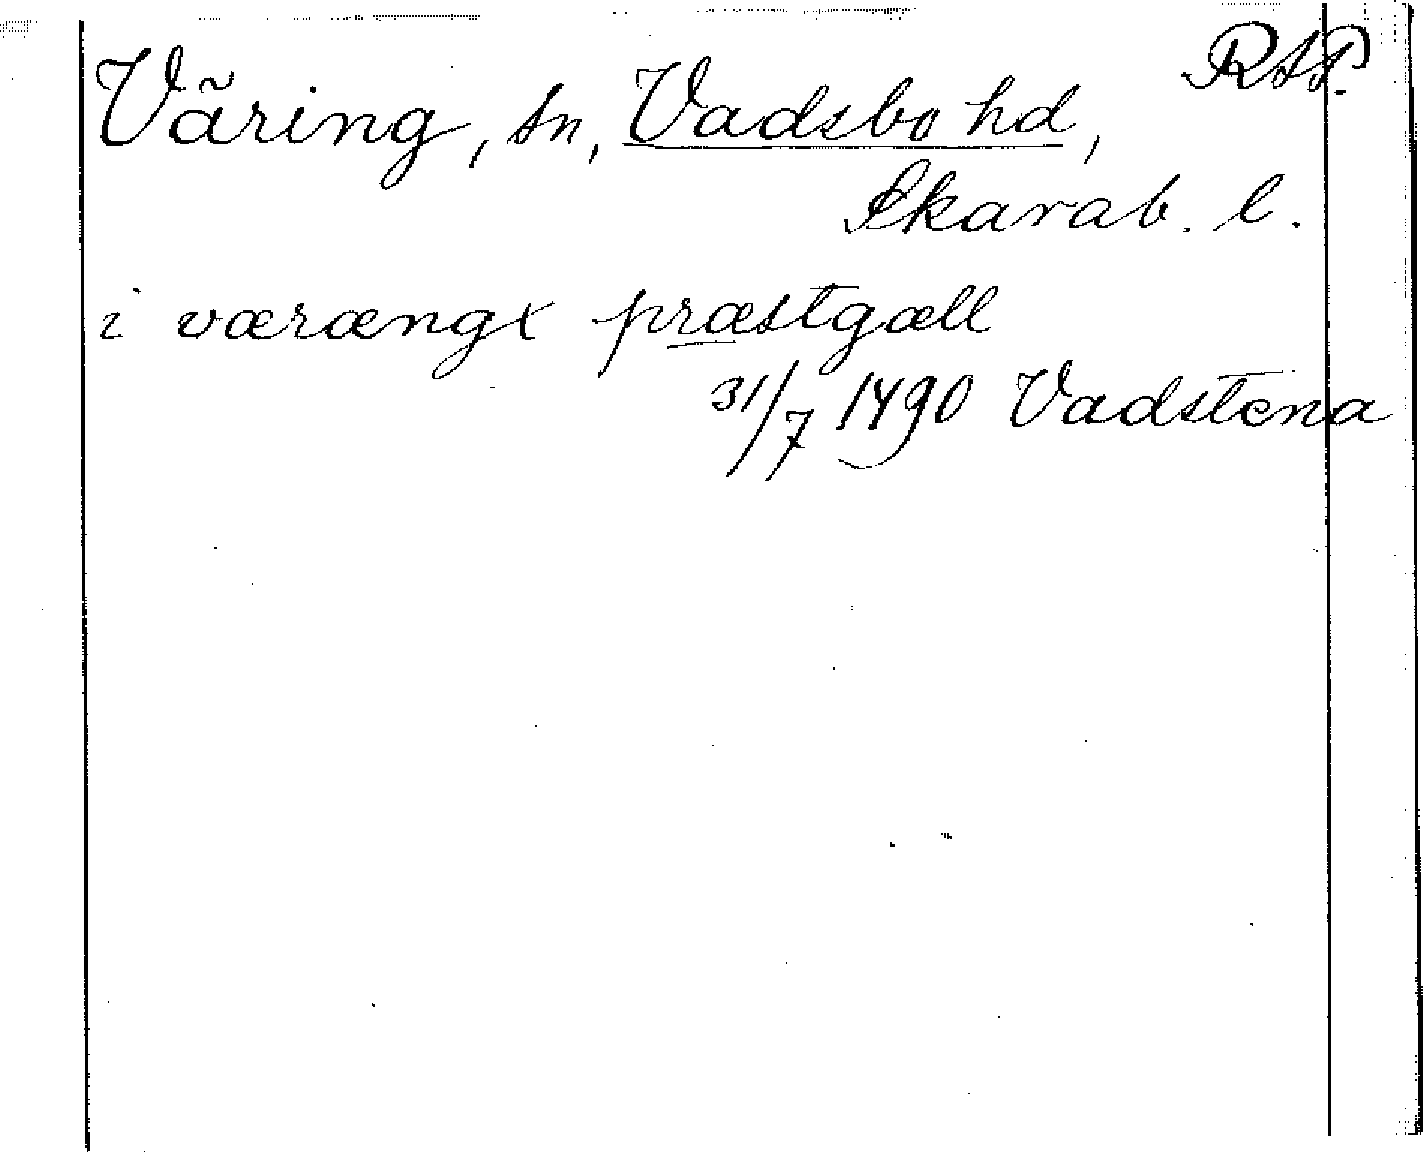 RAP.
Väring, sn, Vadsbo hd,
Skarab. l.
i værængx præstgæll
31/7 1490 Vadstena